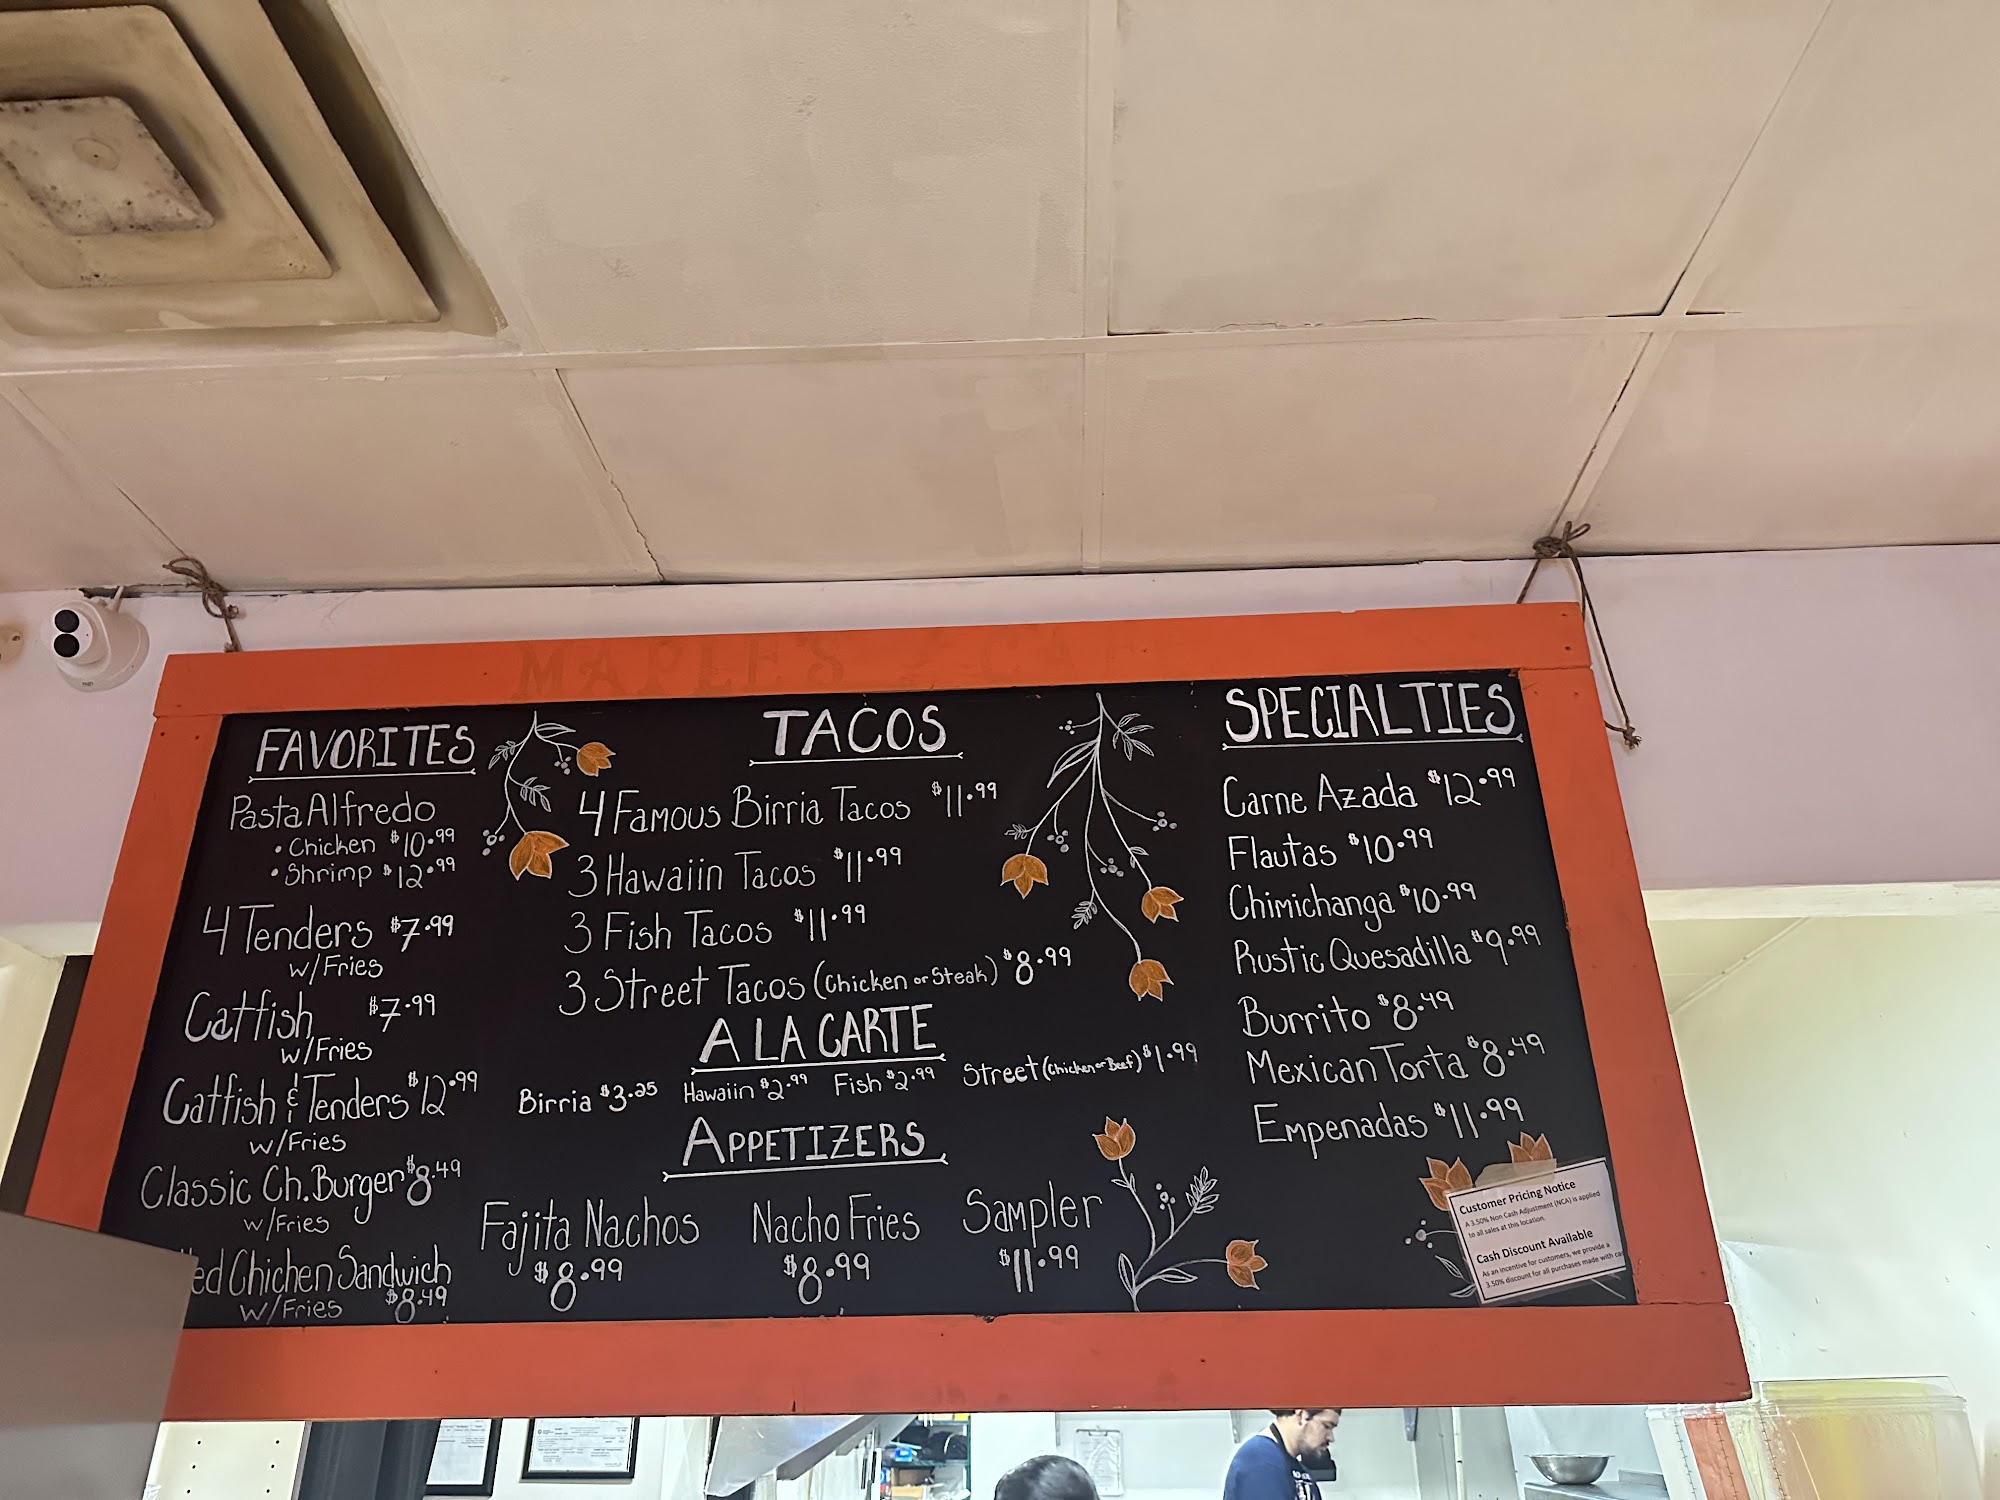 MAPLE'S CAF
FAVORITES
Pasta Alfredo
• Chicken $10.99
• Shrimp $12.99
4 Tenders $7.99
w/Fries
Catfish $7.99
w/Fries
Catfish & Tenders $12.99
w/Fries
Classic Ch. Burger $8.49
w/Fries
Chichen Sandwich
w/Fries $8.49
TACOS
4 Famous Birria Tacos $11.99
3 Hawaiin Tacos $11.99
3 Fish Tacos $11.99
3 Street Tacos (Chicken or Steak) $8.99
A LA CARTE
Birria $3.25 Hawaiin $2.99 Fish $2.99 Street (Chicken or Beef) $1.99
APPETIZERS
Fajita Nachos
$8.99
Nacho Fries
$8.99
Sampler
$11.99
SPECIALTIES
Carne Azada $12.99
Flautas $10.99
Chimichanga $10.99
Rustic Quesadilla $9.99
Burrito $8.49
Mexican Torta $8.49
Empenadas $11.99
Customer Pricing Notice
A 3.50% Non Cash Adjustment (NCA) is applied
to all sales at this location.
Cash Discount Available
As an incentive for customers, we provide a
3.50% discount for all purchases made with